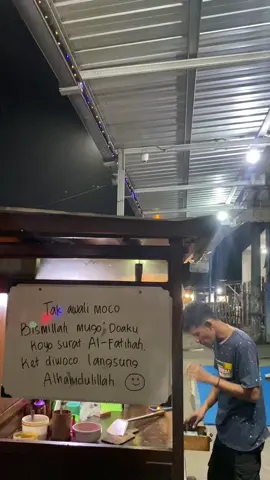 Tak awali moco
Bismillah mugo² Doaku
koyo surat Al-Fatihah.
Ket diwoco langsung
Alhamdulillah ☺